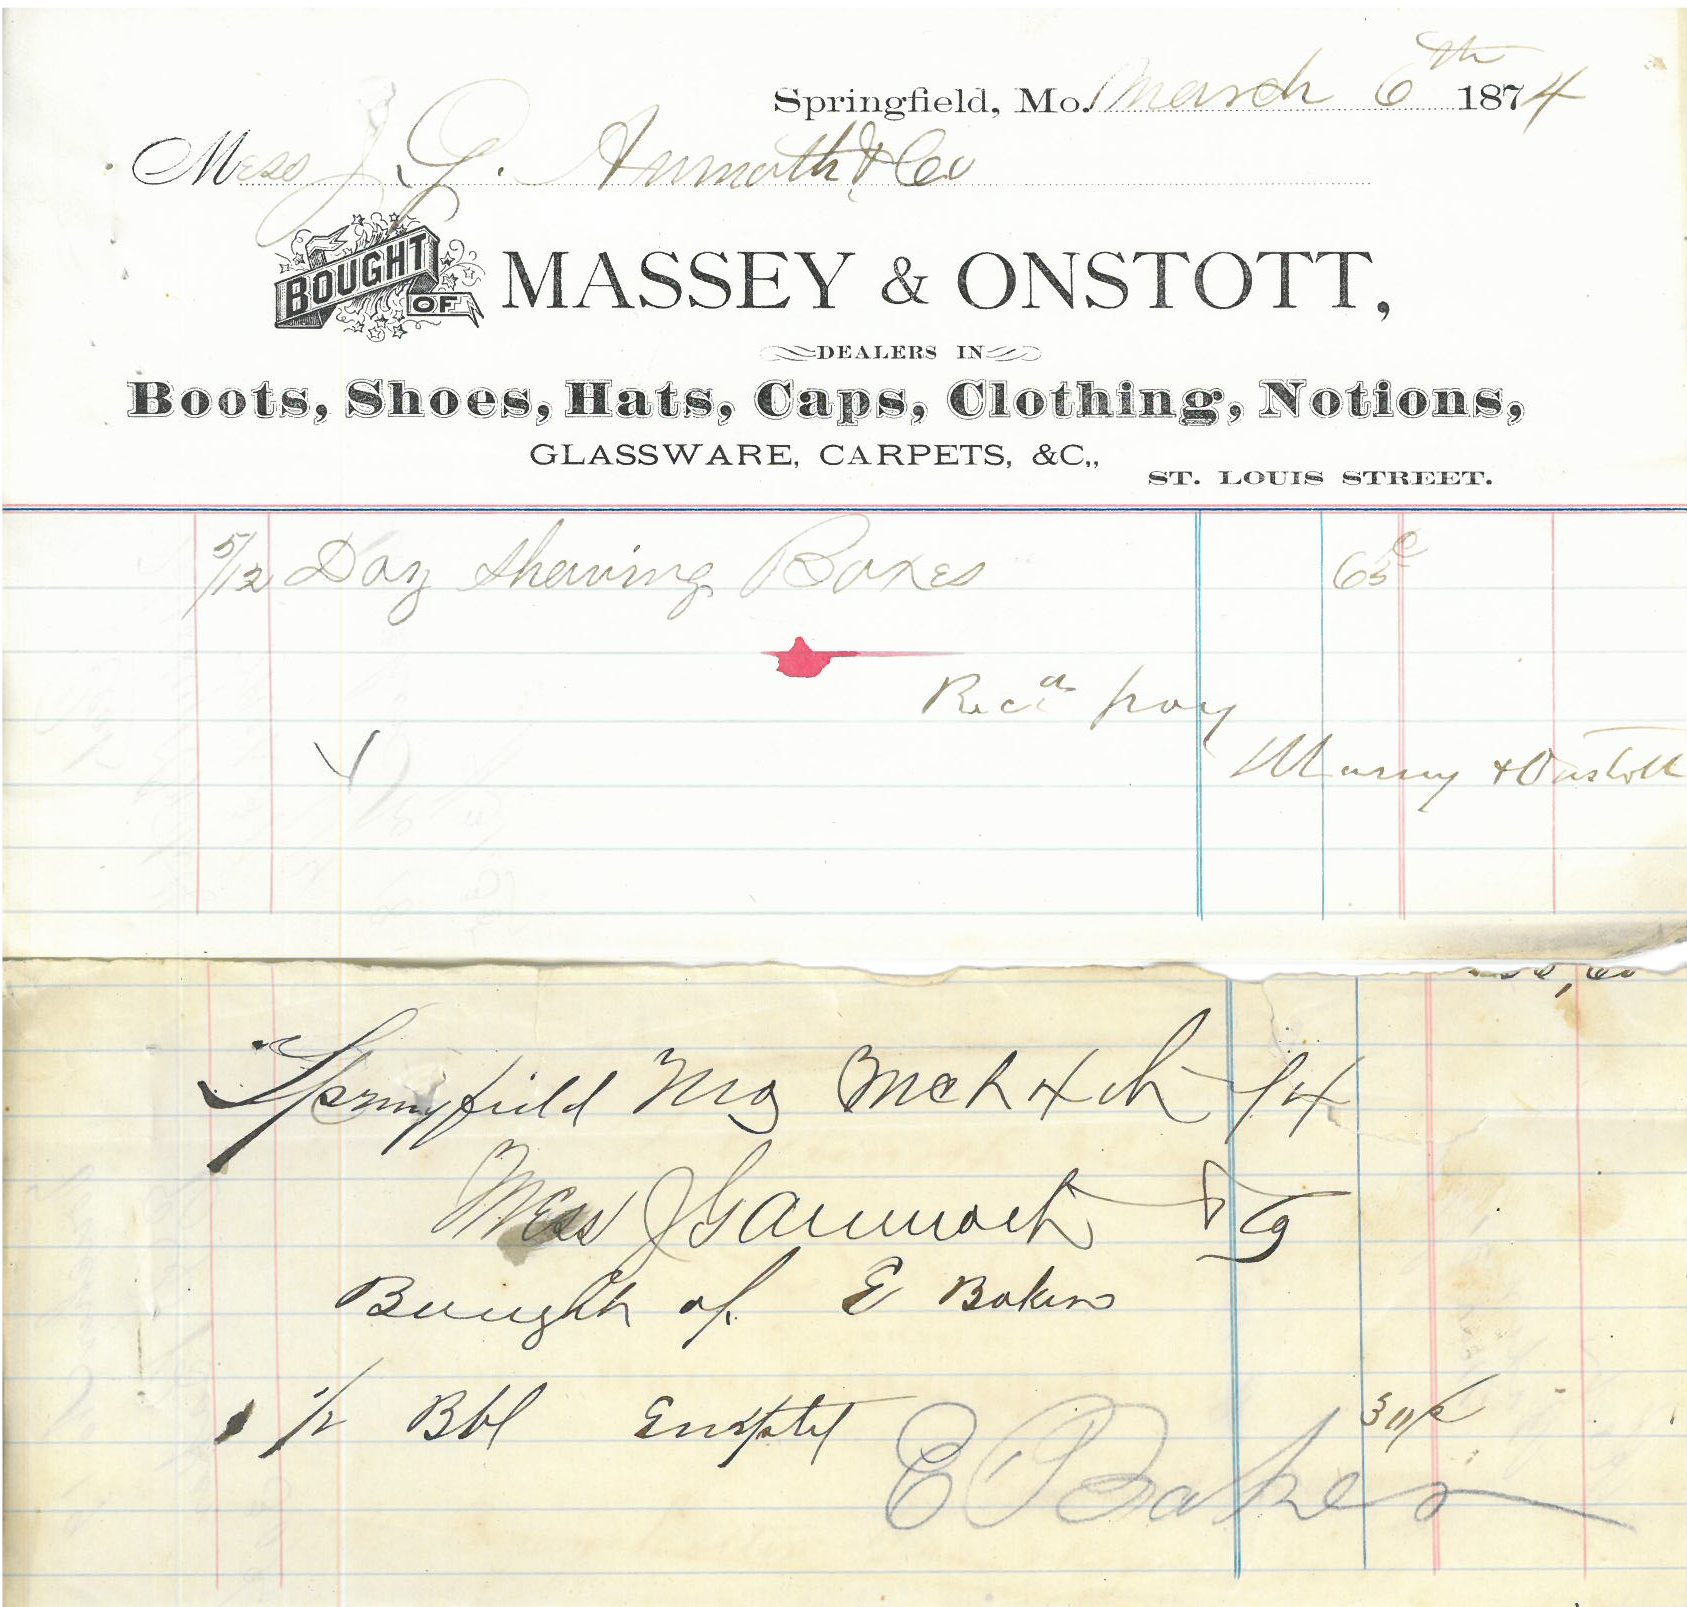 Springfield, Mo. March 6th 1874
Mess J. G. & Co
BOUGHT OF MASSEY & ONSTOTT,
DEALERS IN
Boots, Shoes, Hats, Caps, Clothing, Notions,
GLASSWARE, CARPETS, &C,,
ST. LOUIS STREET.
5/12 Doz Shaving Boxes 65c
Recd pay
Massey & Onstott
Springfield Mo Mch 4th 74
Mess J G &
Bought of E Baker
1/2 Bbl
E Baker